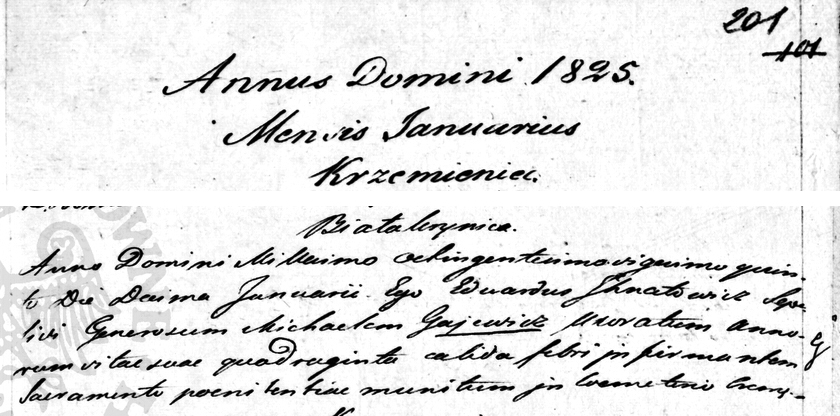 201
101
Annus Domini 1825.
Mensis Januarius
Krzemieniec.
Białakrynica.
Anno Domini Millesimo octingentesimo vigesimo quin-
to Die Decima Januarii Ego Eduardus Ihnatowicz Sepe-
livi Generosum Michaelem Gajewicz Uxoratum anno-
rum vitae suae quadraginta calida febri infirmantem
Sacramento poenitentiae munitum in Coemeterio